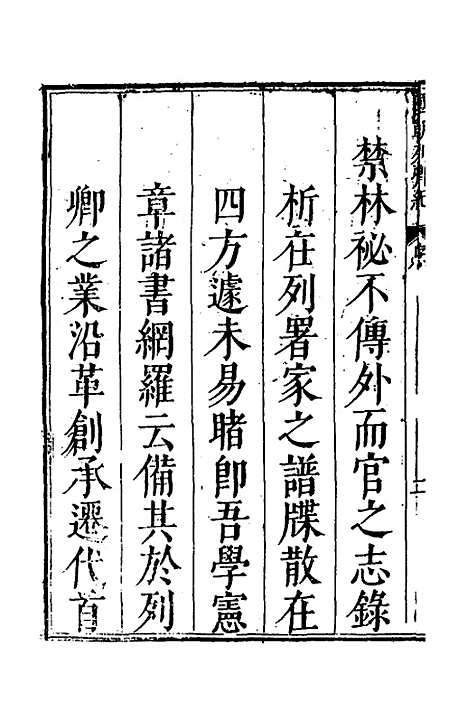 禁林祕不傳外而官之志錄
析在列署家之譜牒散在
四方遽未易睹卽吾學憲
章諸書網羅云備其於列
卿之業沿革創承遷代首